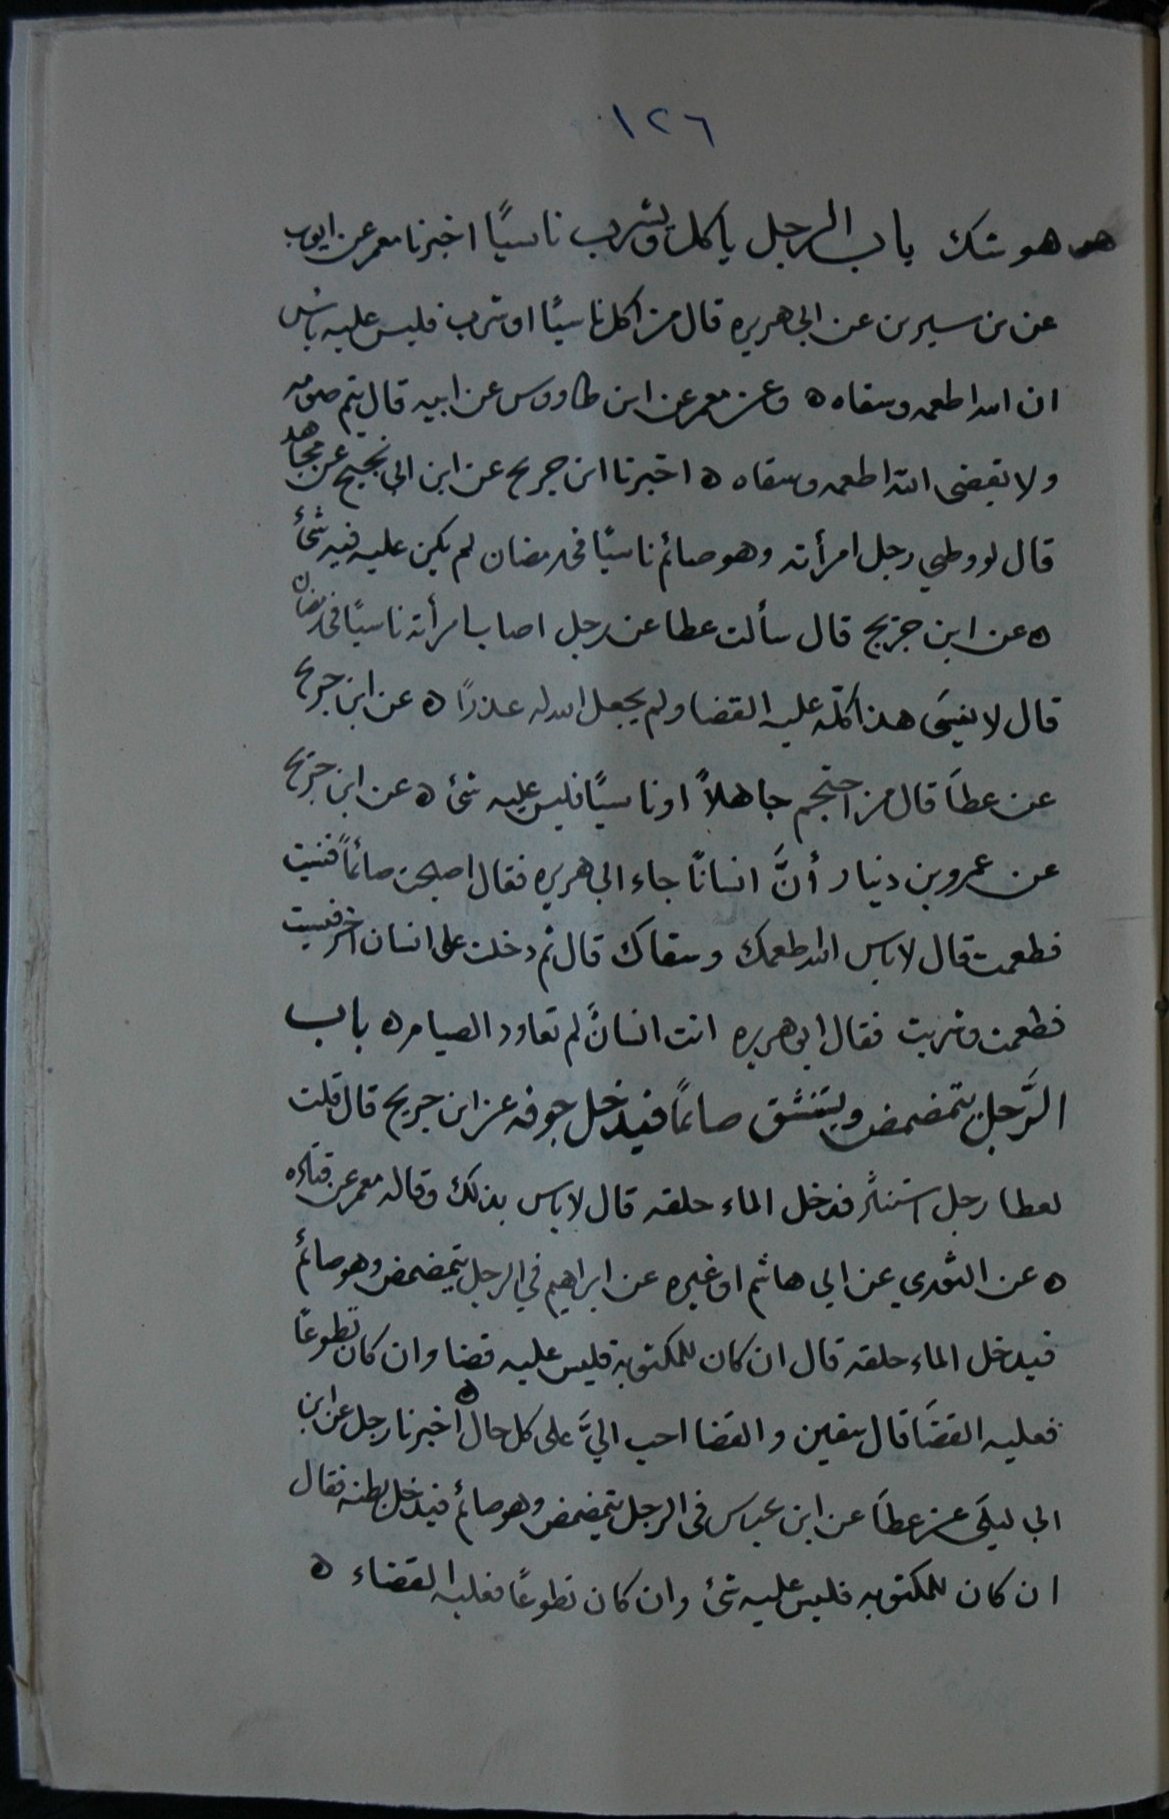 ١٢٦
هو هو شك باب الرجل ياكل ويشرب ناسيًا اخبرنا معمر عن ايوب
عن بن سيرين عن ابي هريره قال من اكل ناسيًا او شرب فليس عليه باس
ان الله اطعمه وسقاه ه وعن معمر عن ابن طاووس عن ابيه قال يتم صومه
ولا يقضى الله اطعمه وسقاه ه اخبرنا ابن جريج عن ابن ابي نجيح عن مجاهد
قال لو وطي رجل امرأته وهو صائم ناسيًا في رمضان لم يكن عليه فيه شئ
ه عن ابن جريج قال سألت عطا عن رجل اصاب امرأته ناسيًا في رمضان
قال لا ينسَى هذا كلّه عليه القضا ولم يجعل الله له عذرًا ه عن ابن جريج
عن عطاَ قال من احتجم جاهلاً او ناسيًا فليس عليه شئ ه عن ابن جريج
عن عمرو بن دينار أنَّ انسانًا جاء ابي هريره فقال اصبحت صائماً فنسيت
فطعمت قال لا باس الله اطعمك وسقاك قال ثم دخلت على انسان اخر فنسيت
فطعمت وشربت فقال ابو هريره انت انسانً لم تعاود الصيام ه باب
الرَّجل يتمضمض ويستنشق صائمًا فيدخل جوفه عن ابن جريج قال قلت
لعطا رجل استنثر فدخل الماء حلقه قال لا باس بذلك وقاله معمر عن قتاده
ه عن الثوري عن ابي هاشم او غيره عن ابراهيم في الرجل يتمضمض وهو صائم
فيدخل الماء حلقه قال ان كان للمكتوبه فليس عليه قضا وان كان تطوعًا
فعليه القضاَ قال سفين والقضا احب اليَّ على كل حال ه اخبرنا رجل عن ابن
ابي ليلَى عن عطاَ عن ابن عباس في الرجل يتمضمض وهو صائم فيدخل بطنه فقال
ان كان للمكتوبه فليس عليه شئ وان كان تطوعًا فعليه القضاء ه